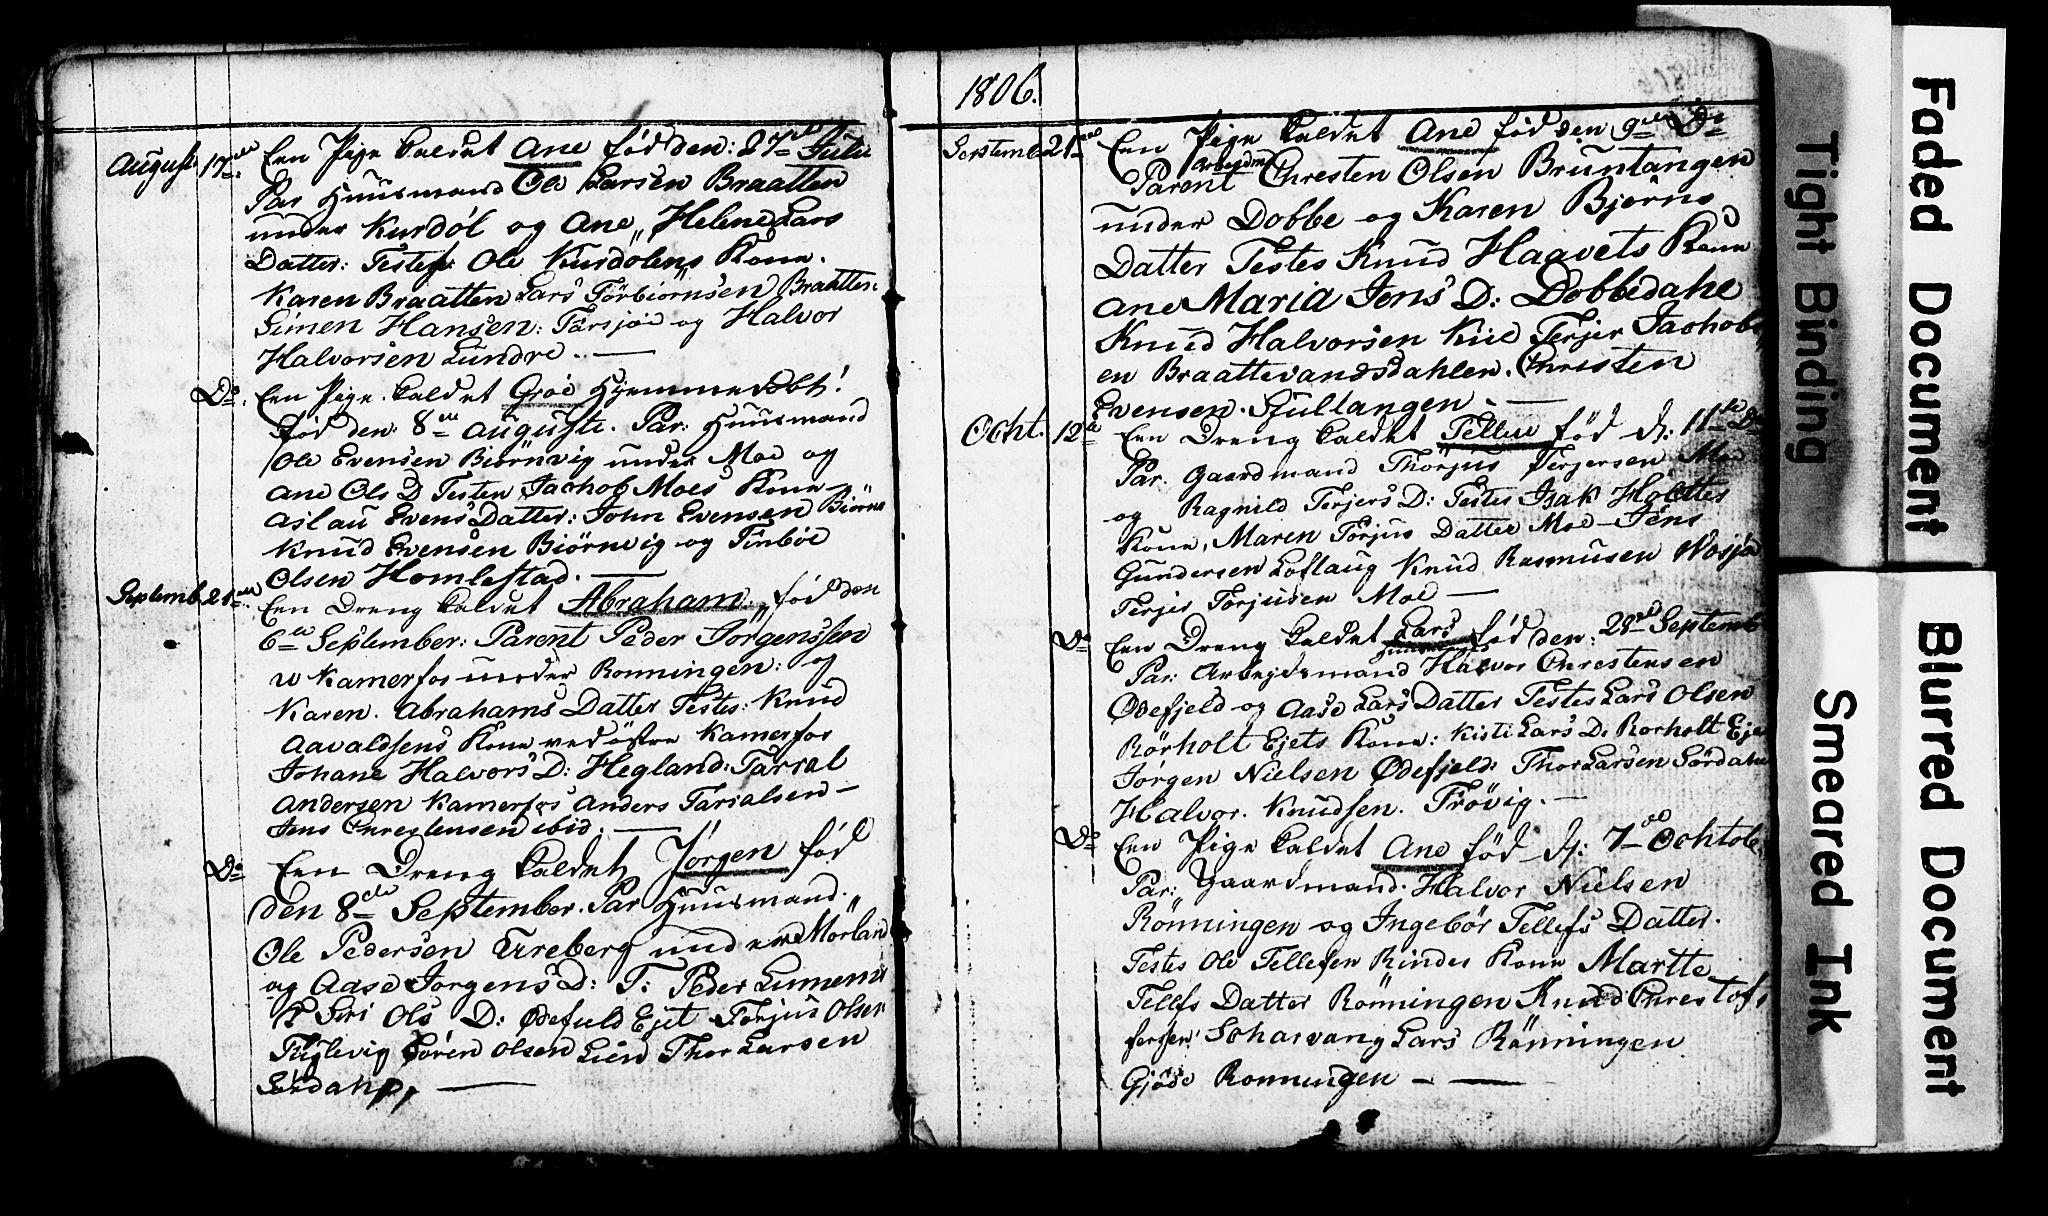 August 17de Een Pige kaldet Ane fød den: 27de Julii
Par Huusmand Ole Larsen Braatten
under Kurdøl og Ane Helene Lars
Datter: Testes Ole Kurdølens Kone.
Karen Braatten Lars Torbiørnsen Braatten
Simen Hansen: Tarsjøe og Halvor
Halvorsen Lundre. —
Do. Een Pige kaldet Groe Hjemmedøbt!
fød den 8de Auguste. Par: Huusmand
Ole Evensen Biørnvig under Moe og
Ane Ols D Testes Jachob Moes Kone
Aslau Evens Datter: John Evensen Biørnv
Knud Evensen Biørnvig og Tinbøe
Olsen Homlestad. —
Septemb. 21de Een Dreng kaldet Abraham fød den
6te September: Parent Peder Jørgenssen
w Kamerfos under Ronningen: og
Karen. Abrahams Datter Testes: Knud
Aavaldsens Kone ved østre Kamerfos
Johane Halvors D: Hegland: Tarral
Andersen Kamerfos Anders Taralsen —
Jens Chrestensen ibid. —
Do Een Dreng kaldet Jørgen fød
den 8de September. Par Huusmand.
Ole Pedersen Ureberg under Mørland
og Aase Jørgens D: T: Peder
Siri Ols D: Ødefield Ejet Torjus Olsen
Fuglevig Søren Olsen Lien Thor Larsen
Sørdahl, —
1806.
Septemb 21de Een Pige kaldet Ane fød den 9de Do
Arbejdm
Parent Chresten Olsen Bruntangen
under Dobbe og Karen Bjørns
Datter Testes Knud Haavets Kone
Ane Maria Jens D: Dobbedahl
Knud Halvorsen Kiil Terjer Jachobs
en Braattevandsdahlen. Chresten
Evensen. Sultangen. —
Ocht. 12te Een Dreng kaldet Tellev fød d: 11te Do
Par. Gaardmand Thorjus Terjersen Moe
og Ragnild Terjers D: Testes Isak Holtter
Kone, Maren Torjus Datter Moe — Jens
Gundersen Loflaug Knud Rasmusen Wasjøe
Terjer Torjusen Moe —
Do Een Dreng kaldet Lars fød den: 28de Septemb
Par: Arbejdsmand Halvor Chrestensen
Ødefjeld og Aase Lars Datter Testes Lars Olsen
Rørholt Ejets Kone: Kisti Lars D. Rorholt Eje
Jørgen Nielsen Ødefjeld: Thor Larsen Sørdahl
Halvor. Knudsen. Trøvig. —
Do Een Pige kaldet Ane fød d: 7de Ochtob
Par: Gaardmand. Halvor Nielsen
Rønningen og Ingebør Tellefs Datter.
Testes Ole Tellefsen Rindes Kone Martte
Tellefs Datter Rønningen Knud Chrestof
fersen Scharvang Lars Rønningen
Gjøde Ronningen — —
Faded Document
Tight Binding
Blurred Document
Smeared Ink